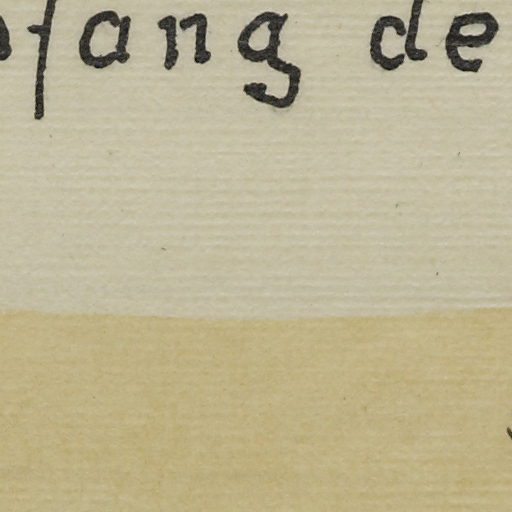 pfang de